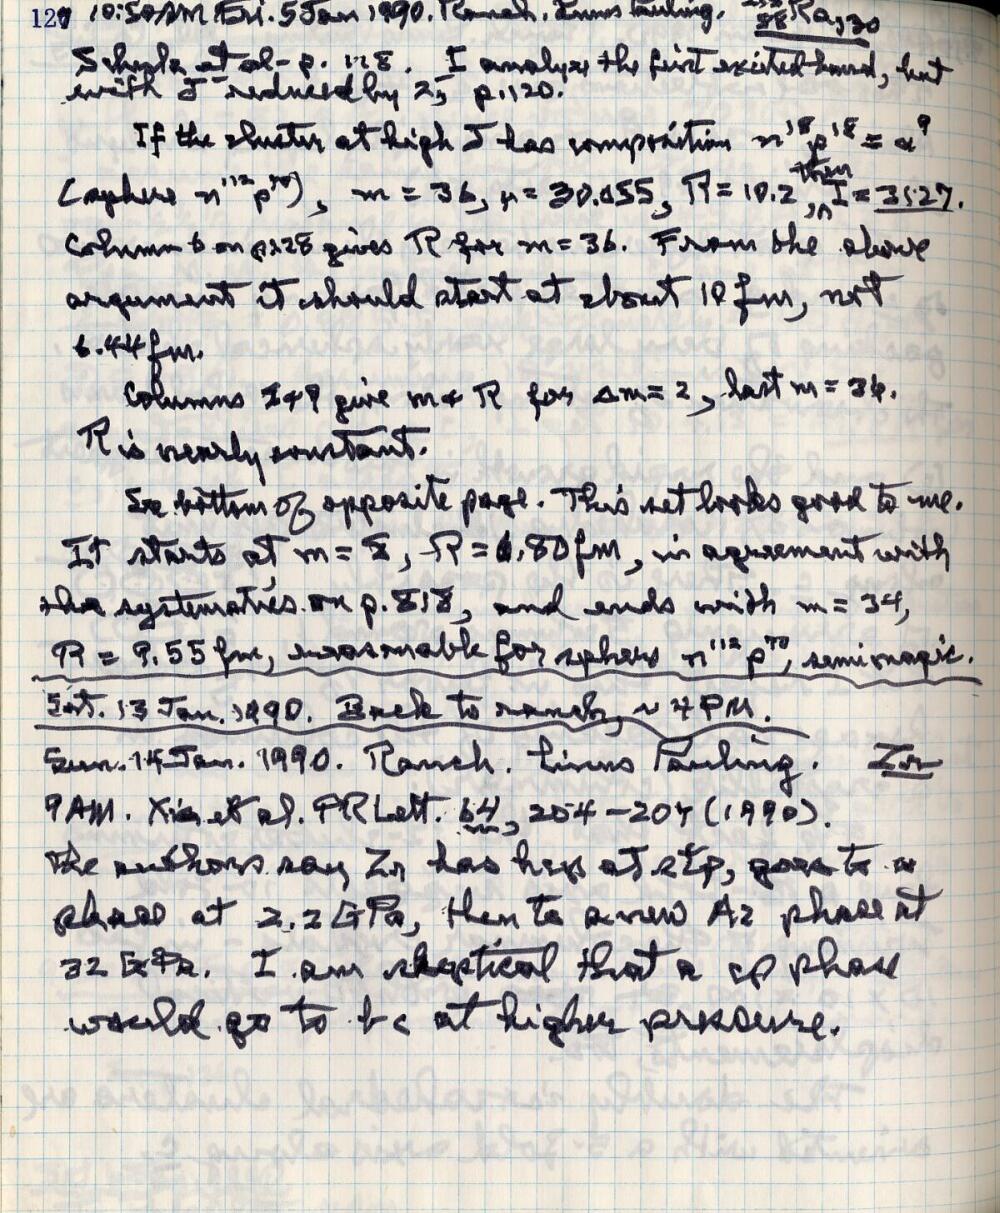 129 10:50AM Fri. 5 Jan 1990. Ranch. Linus Pauling. 88Ra130
et al - p. 128. I analyze the first excited band, but
with J reduced by 2, p. 120.
If the cluster at high J has composition n18p18 = α9
(sphere n112p70), m = 36, μ = 30.055, R = 10.2, then I = 3127.
Column 6 on p128 gives R for m = 36. From the above
argument it should start at about 10 fm, not
6.44 fm.
Columns 8+9 give m + R for Δm = 2, last m = 36.
R is nearly constant.
See bottom of opposite page. This set looks good to me.
It starts at m = 8, R = 6.80 fm, in agreement with
the systematics on p. 818, and ends with m = 34,
R = 9.55 fm, reasonable for sphere n112p70, semimagic.
Sat. 13 Jan. 1990. Back to ranch, ~ 4 PM.
Sun. 14 Jan. 1990. Ranch. Linus Pauling. Zr
9AM. Xia et al. PR Lett. 64, 204-207 (1990).
The authors say Zr has hcp at stp, goes to ω
phase at 2.2 GPa, then to a new A2 phase at
32 GPa. I am skeptical that a cp phase
would go to bc at higher pressure.